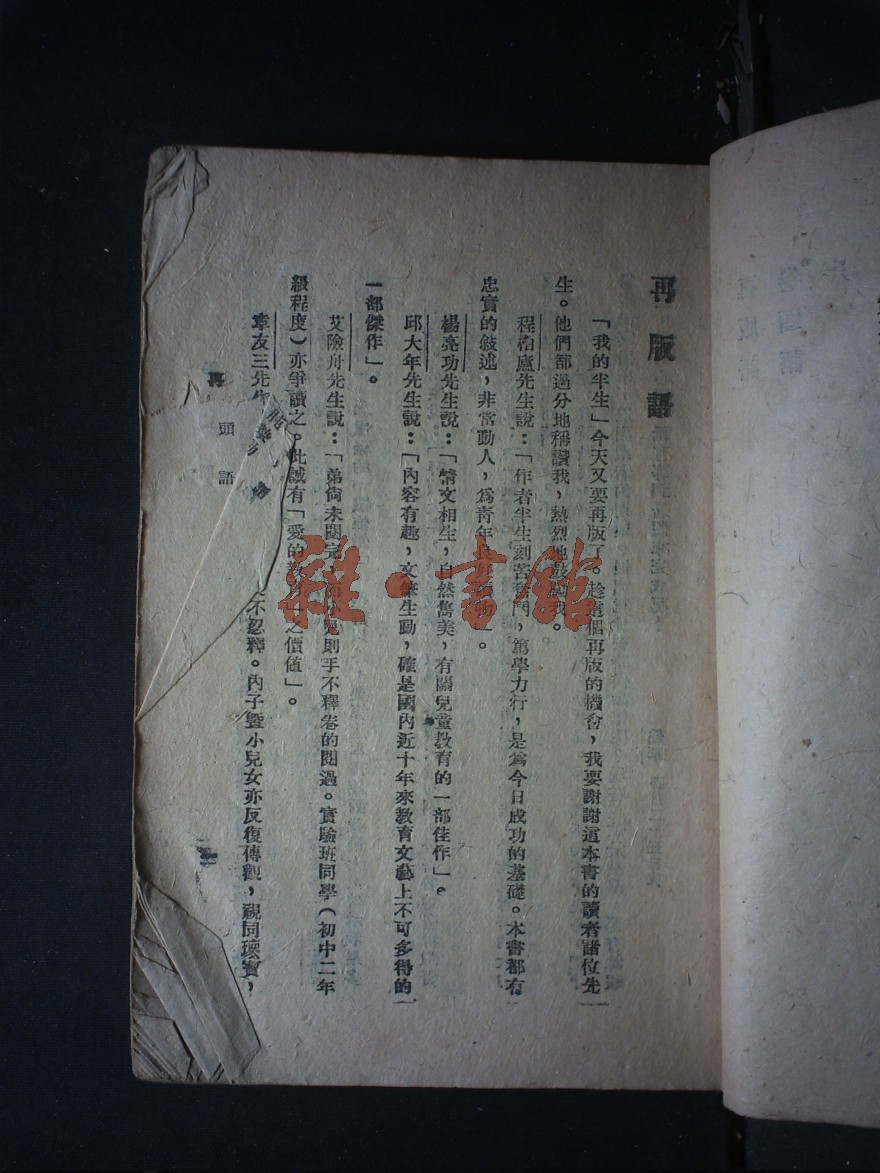 再版語
「我的半生」今天又要再版了。趁這個再版的機會，我要謝謝這本書的讀者諸位先
生。他們都過分地稱讚我，熱烈地鼓勵我。
程柏廬先生說：「作者半生刻苦奮鬥，篤學力行，是爲今日成功的基礎。本書都有
忠實的敍述，非常動人，爲青年良好讀物」。
楊亮功先生說：「情文相生，自然雋美，有關兒童教育的一部佳作」。
邱大年先生說：「內容有趣，文筆生動，確是國內近十年來教育文藝上不可多得的
一部傑作」。
艾險舟先生說：「弟尙未閱完，而小兒則手不釋卷的閱過。實驗班同學（初中二年
級程度）亦爭讀之。此誠有「愛的教育」之價值」。
章友三先生
不忍釋。內子曁小兒女亦反復傳觀，視同瓌寶，
再
頭語
雜·書館